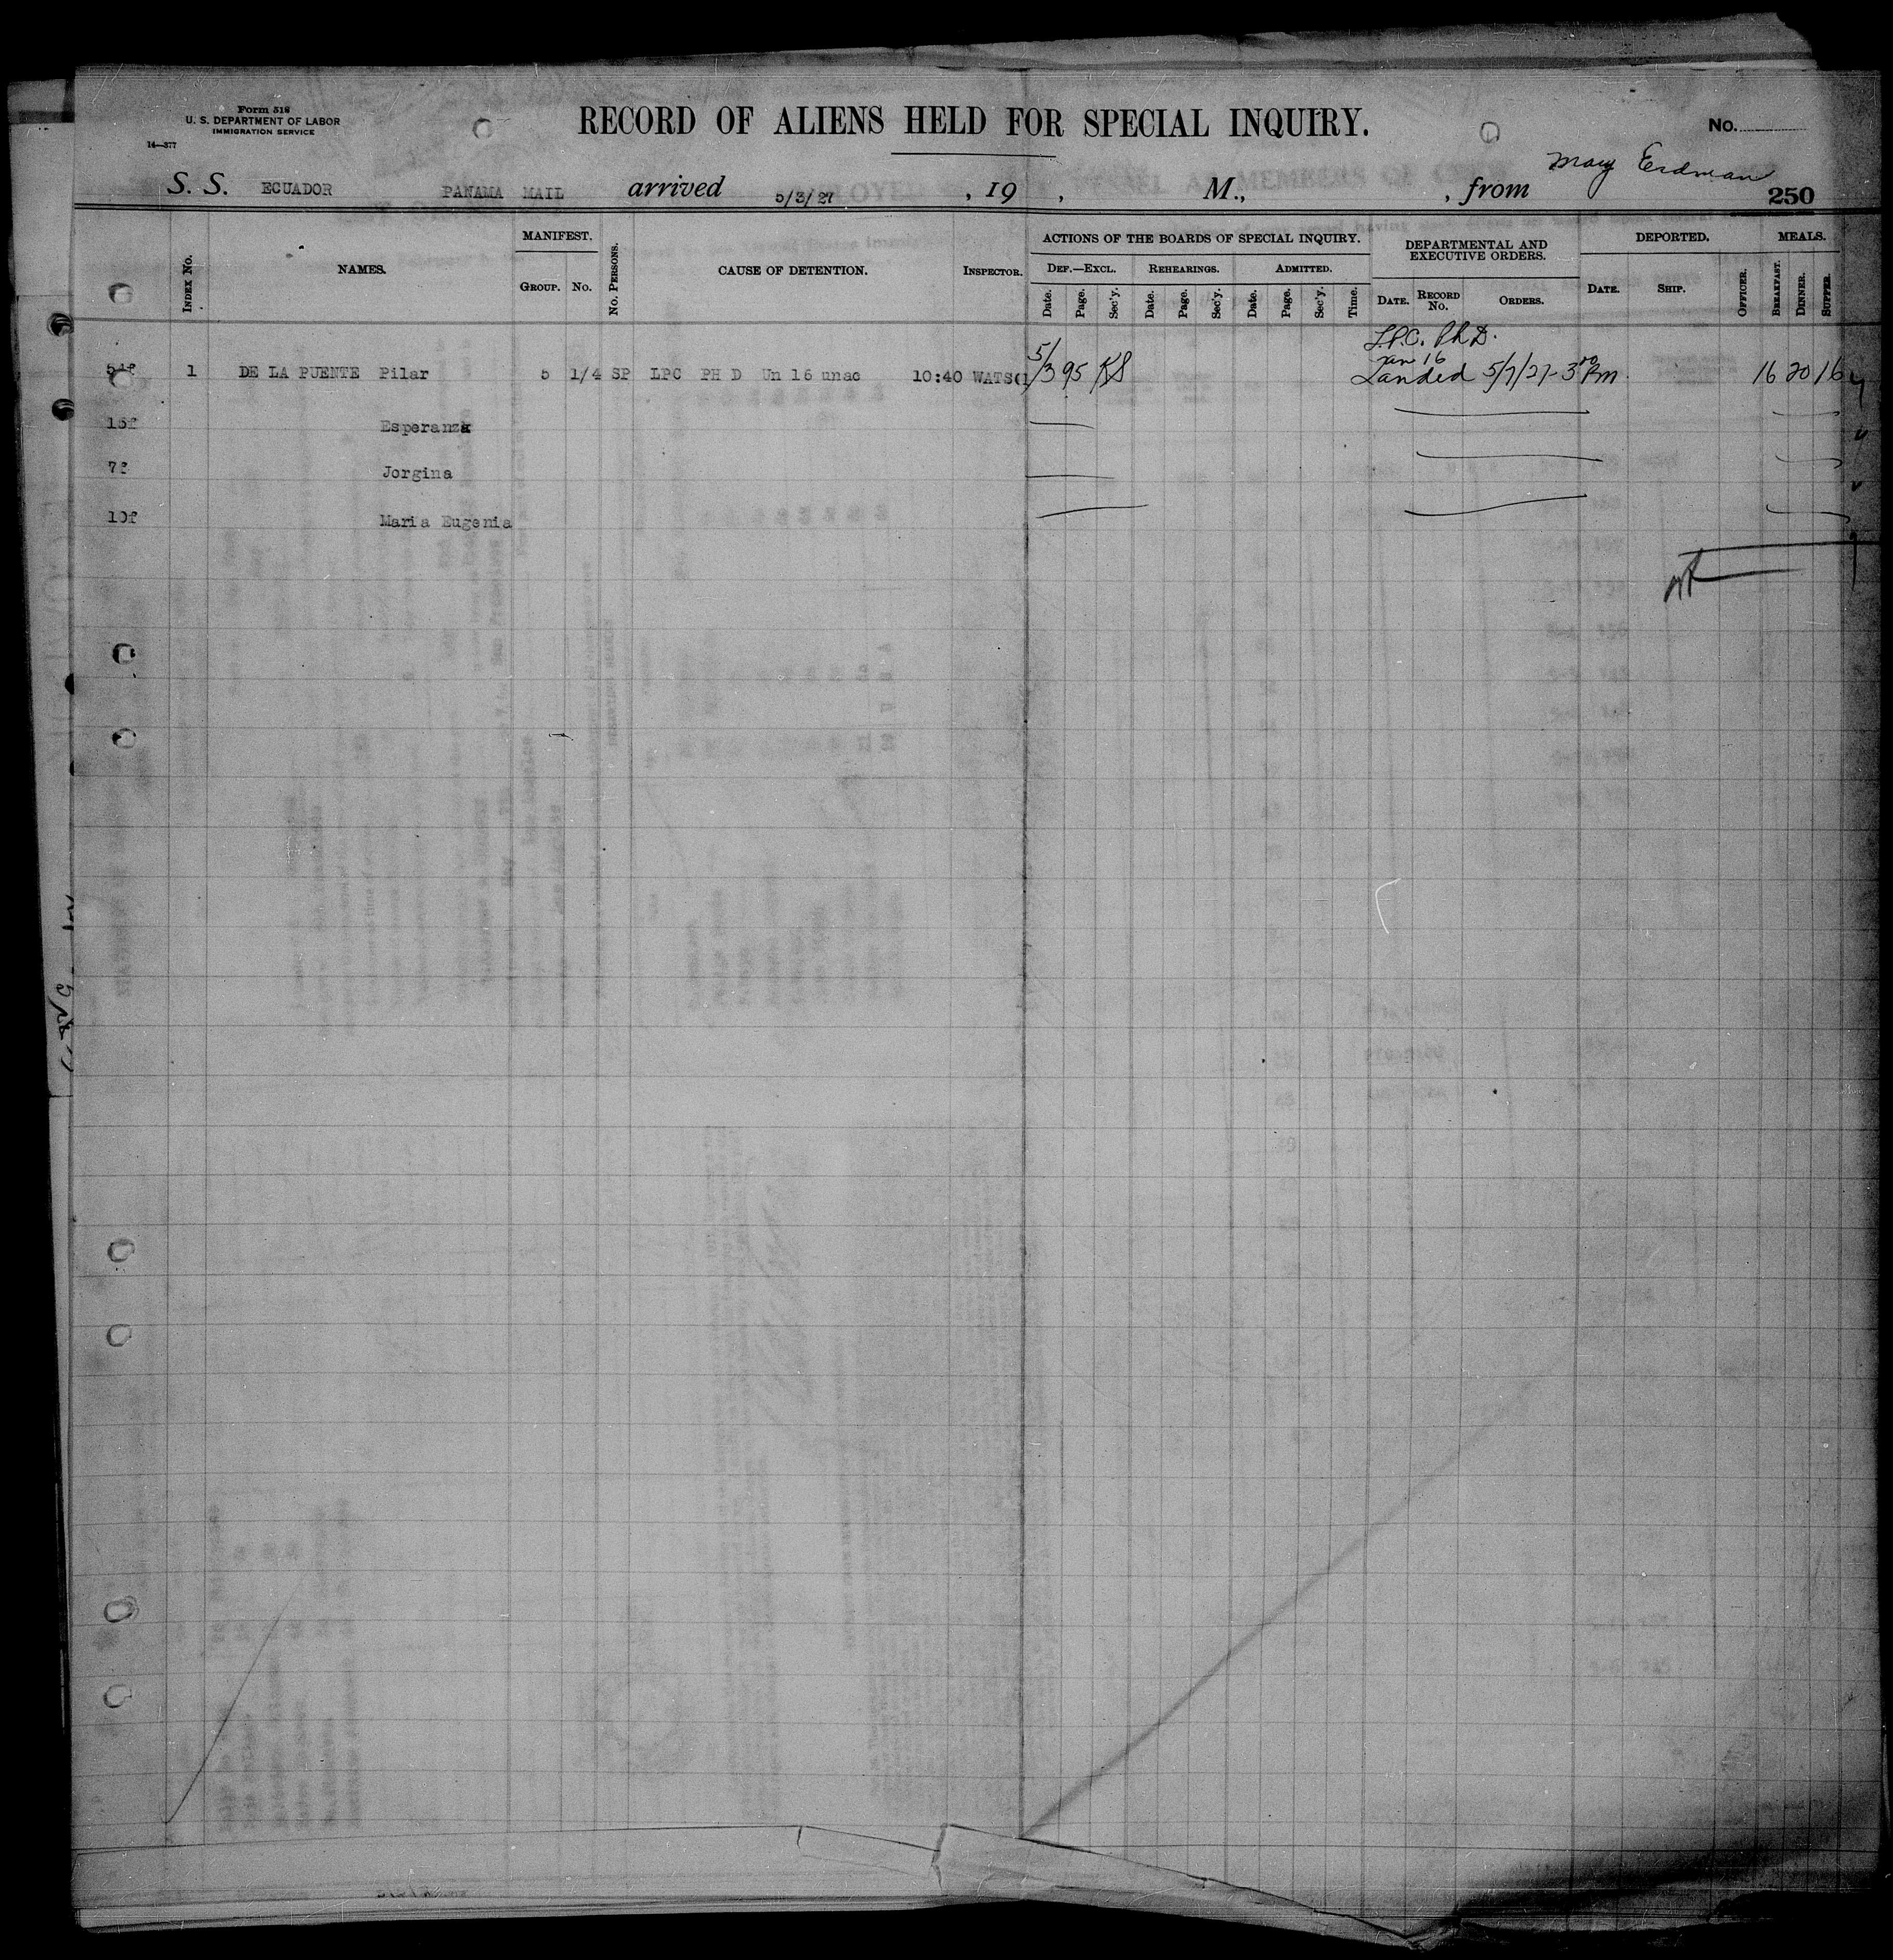 Form 516
U. S. DEPARTMENT OF LABOR
IMMIGRATION SERVICE
14—377
RECORD OF ALIENS HELD FOR SPECIAL INQUIRY.
No.
S. S. ECUADOR PANAMA MAIL arrived 5/3/27, 19 , M., , from Mary Erdman
250
Index No. NAMES. MANIFEST. Group. No. No. Persons. CAUSE OF DETENTION. Inspector. ACTIONS OF THE BOARDS OF SPECIAL INQUIRY. Def.—Excl. Date. Page. Sec'y. Rehearings. Date. Page. Sec'y. Admitted. Date. Page. Sec'y. Time. DEPARTMENTAL AND EXECUTIVE ORDERS. Date. Record No. Orders. DEPORTED. Date. Ship. Officer. MEALS. Breakfast. Dinner. Supper.
L.P.C. Ph.D.
54f 1 DE LA PUENTE Pilar 5 1/4 SP LPC PH D Un 16 unac 10:40 WATS(1 5/3 95 Landed 5/7/27- 3 00 Pm 16 20 16
16f Esperanza
7f Jorgina
10f Maria Eugenia